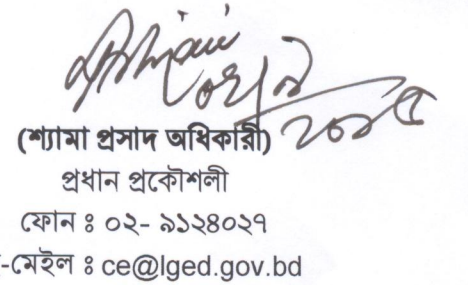 (শ্যামা প্রসাদ অধিকারী)
প্রধান প্রকৌশলী
ফোন ঃ ০২- ৯১২৪০২৭
-মেইল ঃ ce@lged.gov.bd